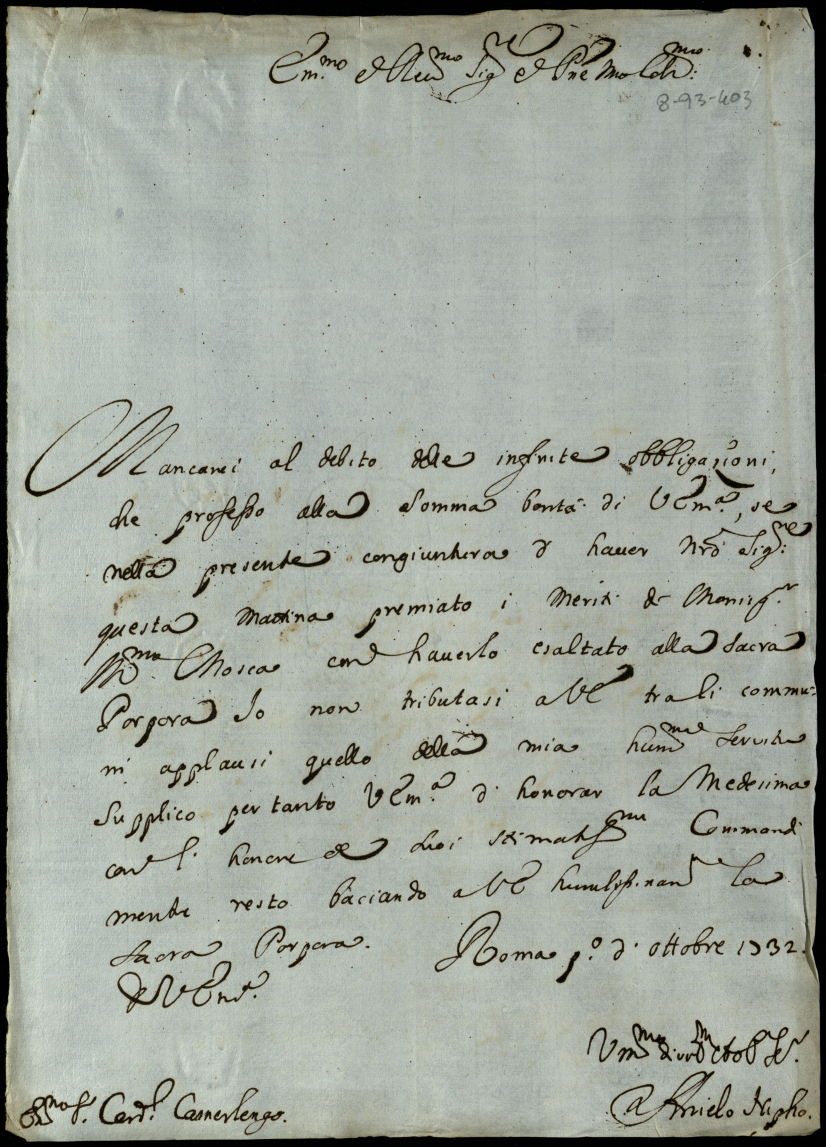 Em.mo e Reu.mo Sig.re e Pne mio Col.mo:
8-93-403
Mancarei al debito delle infinite obbligazioni,
che professo alla somma bontà di VEm.a, se
nella presente congiuntura d' hauer Nrõ Sig.re:
questa Mattina premiato i Meriti di Monsig.r
Ill.mo Mosca con hauerlo esaltato alla Sacra
Porpora Io non tributasi a VE tra li commu:
ni applausi quello della mia hum.ma seruitu
Supplico pertanto VEm.a d' honorar la Medesima
con l' honore de suoi stimatiss.mi Commandi
mentre resto baciando a VE humilissimam.e la
Sacra Porpora. Roma p.o d' ottobre 1732.
D VEm.a
Vm.mo diu.mo et obl Se.r
Em.mo S. Card.l Camerlengo.
Aniello